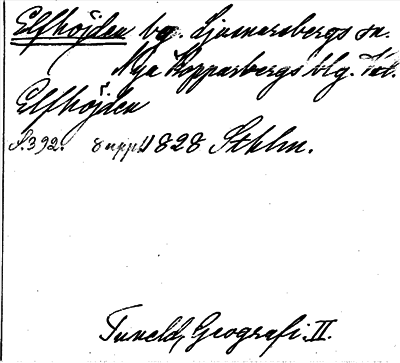 Elfhöjden by. Ljusnarsbergs sn.
Nya Kopparbergs blg. Vstl.
Elfhöjden
S. 392. 8 uppl. 1828 Sthlm.
Tuneld, Geografi. II.